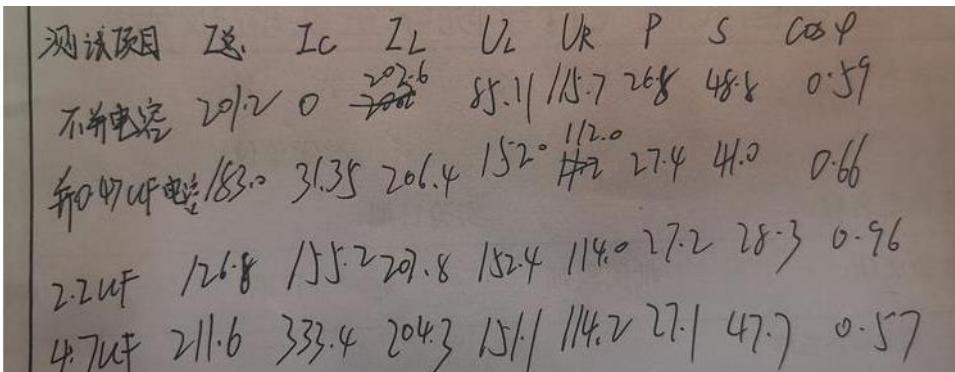 测试项目 I总 Ic IL UL UR P S cosφ
不并电容 201.2 0 202.6 85.11 115.7 26.8 48.8 0.59
并0.47uF电容 183.0 31.35 206.4 152.0 112.0 27.4 41.0 0.66
2.2uF 126.8 155.2 207.8 152.4 114.0 27.2 28.3 0.96
4.7uF 211.6 333.4 204.3 151.1 114.2 27.1 47.7 0.57